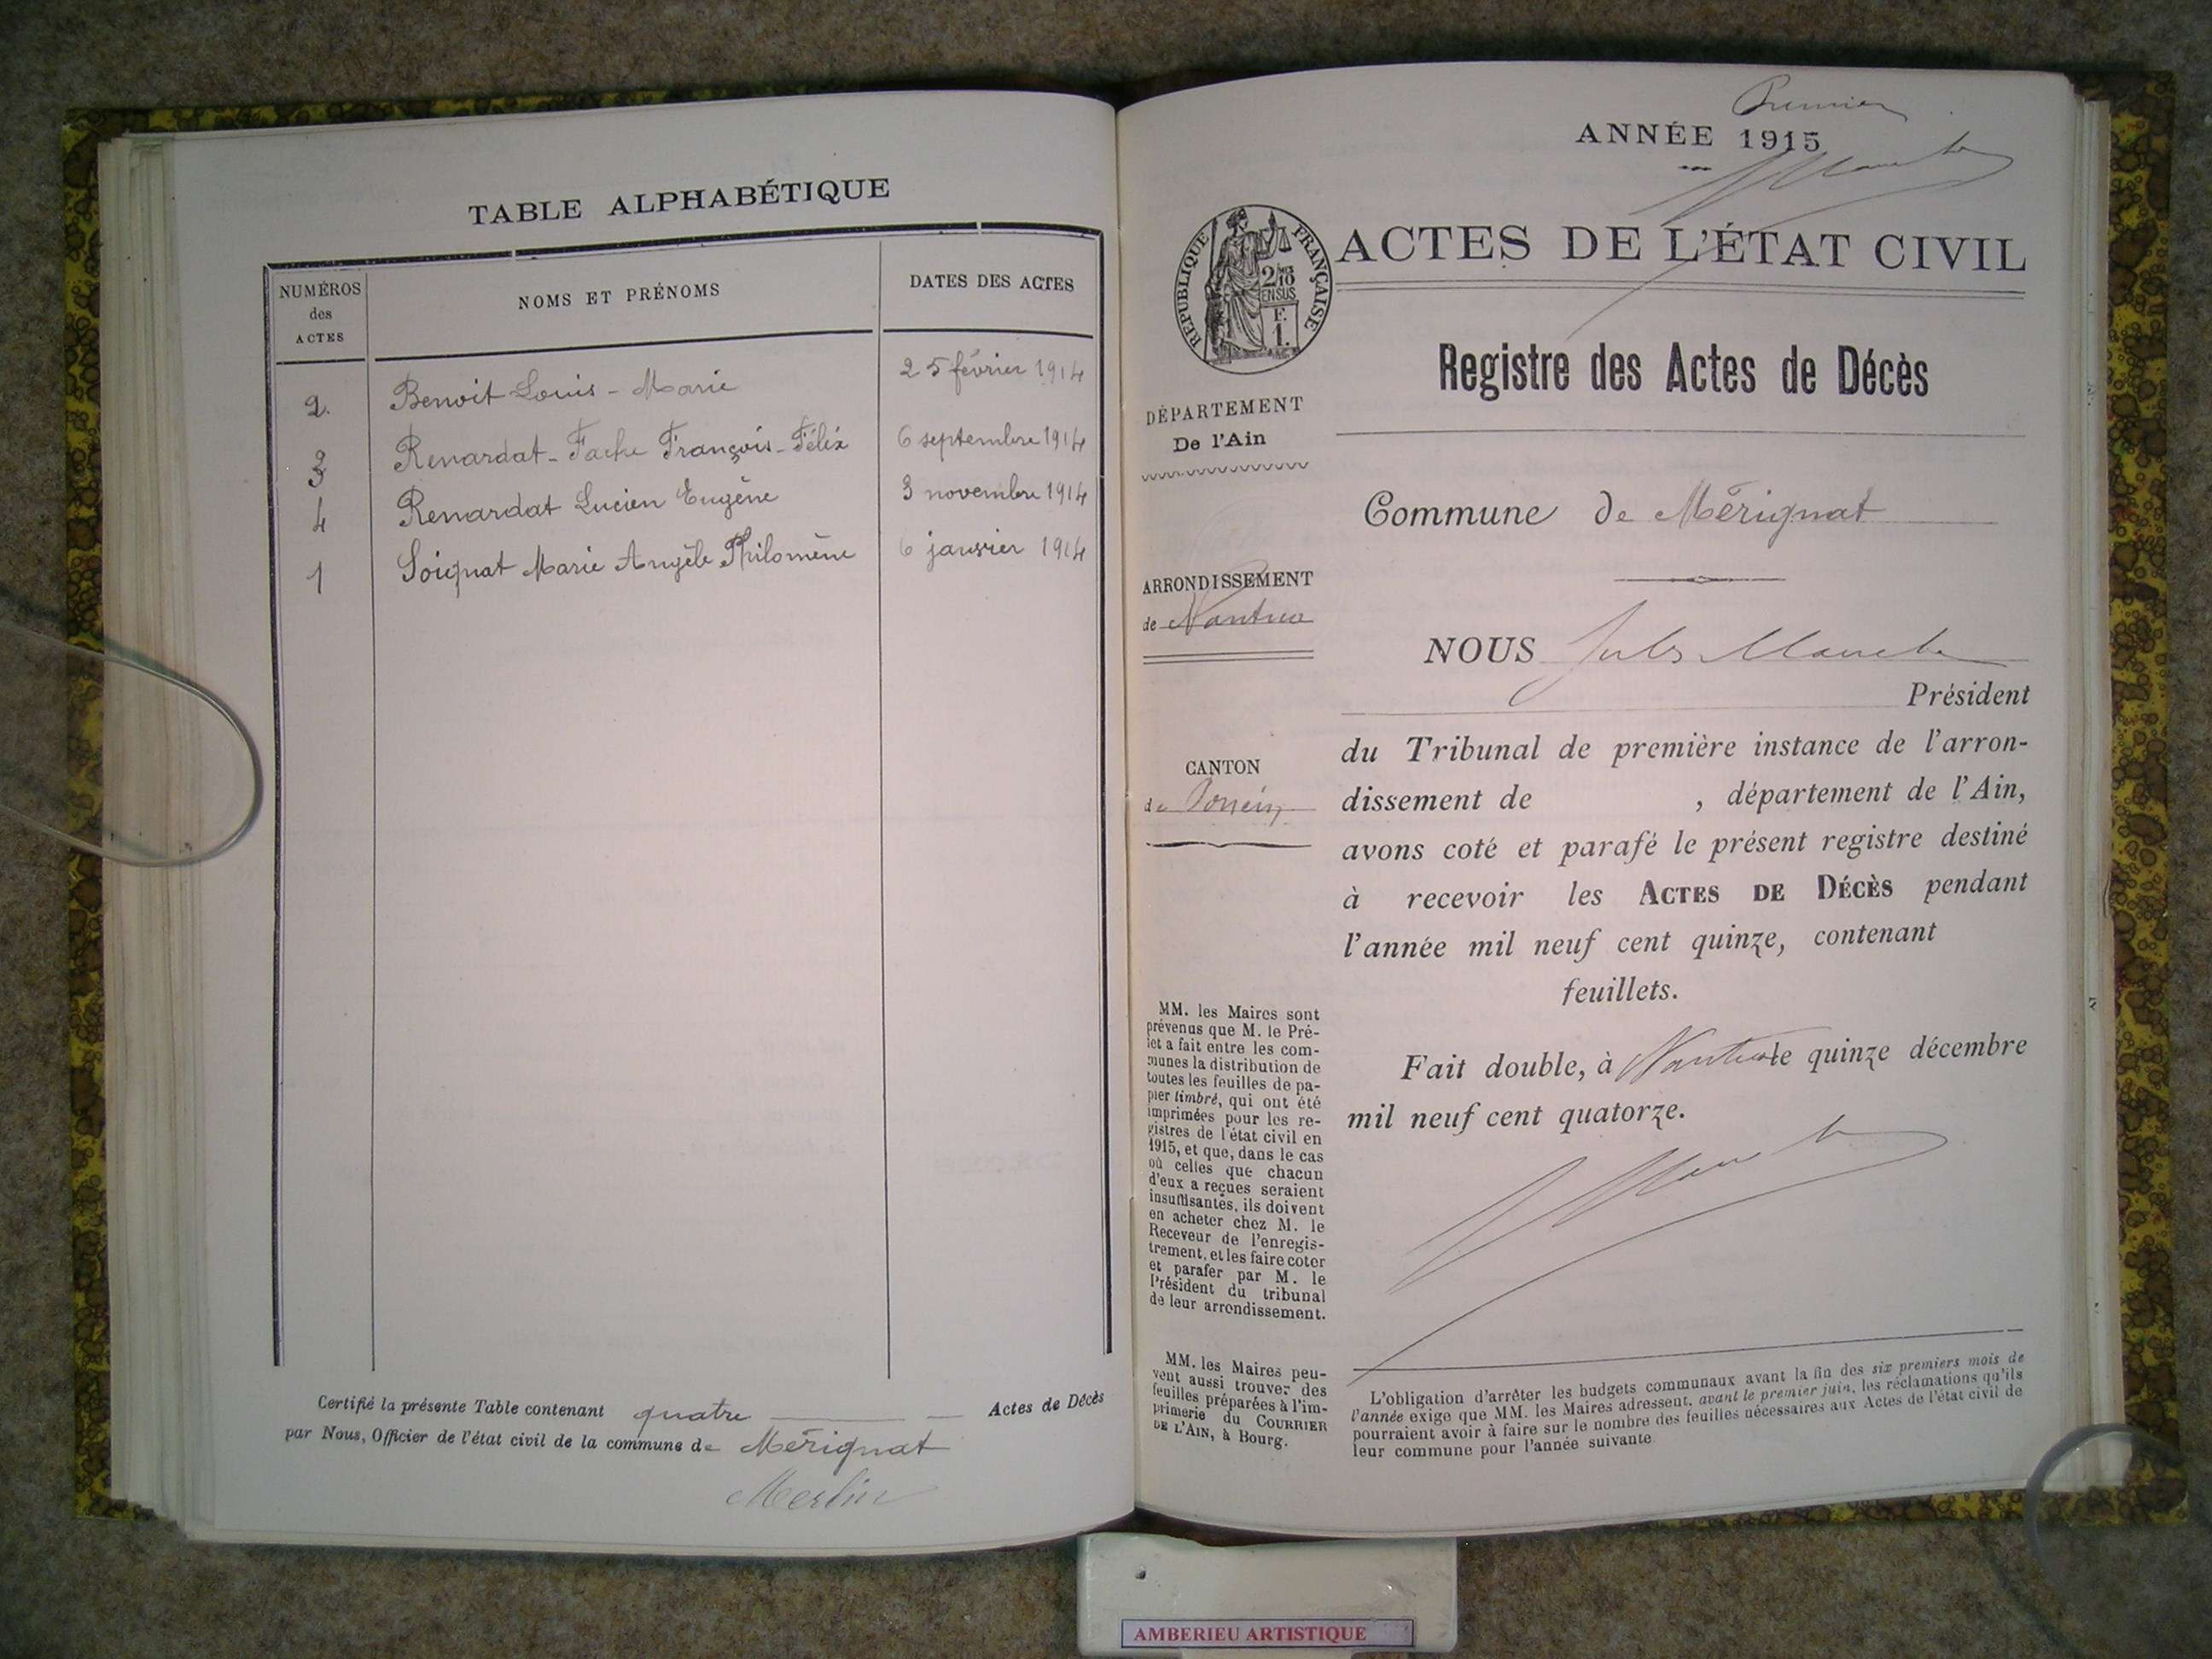 TABLE ALPHABÉTIQUE
NUMÉROS
des
ACTES
NOMS ET PRÉNOMS
DATES DES ACTES
2. Benoit Louis - Marie 25 février 1914
3 Renardat - Fache François - Félix 6 septembre 1914
4 Renardat Lucien Eugène 3 novembre 1914
1 Soignat Marie Angèle Philomène 6 janvier 1914
Certifié la présente Table contenant quatre Actes de Décès
par Nous, Officier de l'état civil de la commune de Mérignat
Merlin
Premier
ANNÉE 1915
RÉPUBLIQUE FRANÇAISE
2/10
EN SUS
F.
1.
ACTES DE L'ÉTAT CIVIL
Registre des Actes de Décès
DÉPARTEMENT
De l'Ain
Commune de Mérignat
ARRONDISSEMENT
de Nantua
CANTON
de Poncin
NOUS Jules
Président
du Tribunal de première instance de l'arron-
dissement de , département de l'Ain,
avons coté et parafé le présent registre destiné
à recevoir les ACTES DE DÉCÈS pendant
l'année mil neuf cent quinze, contenant
feuillets.
Fait double, à Nantua le quinze décembre
mil neuf cent quatorze.
MM. les Maires sont
prévenus que M. le Pré-
fet a fait entre les com-
munes la distribution de
toutes les feuilles de pa-
pier timbré, qui ont été
imprimées pour les re-
gistres de l'état civil en
1915, et que, dans le cas
où celles que chacun
d'eux a reçues seraient
insuffisantes, ils doivent
en acheter chez M. le
Receveur de l'enregis-
trement, et les faire coter
et parafer par M. le
Président du tribunal
de leur arrondissement.
MM. les Maires peu-
vent aussi trouver des
feuilles préparées à l'im-
primerie du COURRIER
DE L'AIN, à Bourg.
L'obligation d'arrêter les budgets communaux avant la fin des six premiers mois de
l'année exige que MM. les Maires adressent, avant le premier juin, les réclamations qu'ils
pourraient avoir à faire sur le nombre des feuilles nécessaires aux Actes de l'état civil de
leur commune pour l'année suivante
AMBERIEU ARTISTIQUE